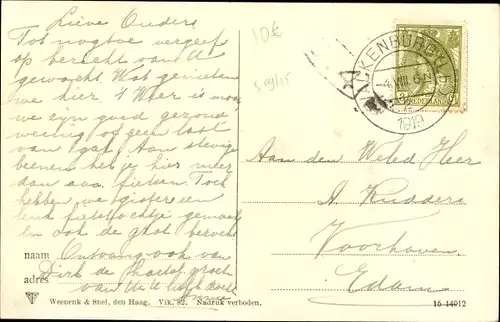 Lieve Ouders
Tot nogtoe vergeefs
op bericht van U
gewacht. Wat genieten
we hier 't Weer is mooi
we zyn goed gezond
weinig of geen last
van 't gat. Aan stevige
beenen heb je hier meer
dan aan fietsen. Toch
hebben we gisteren een
leuk fietstochtje gemaakt
en ook de grot bezocht
naam Ontvang ook van
Dirk de hartel. groet
adres van Uw liefh. doch
10€
VALKENBURG
4 VIII 6-N
1919
NEDERLAND
Aan den Weled. Heer
A. Ridders
Voorhaven
Edam
Weenenk & Snel, den Haag. Vik. 82. Nadruk verboden.
16 14912